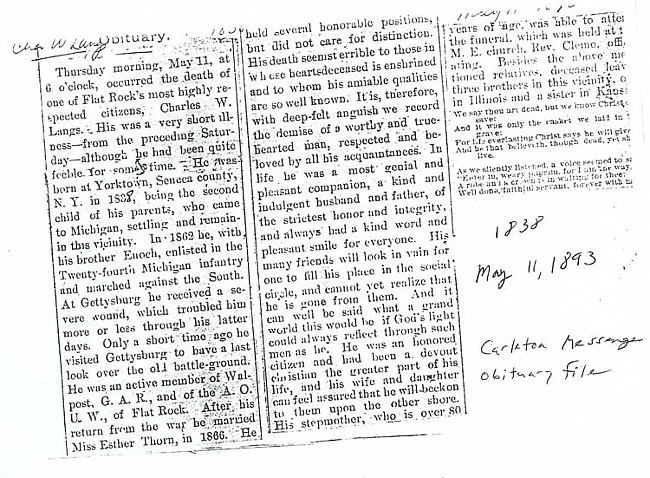 Obituary.
Thursday morning, May 11, at
6 o'clock, occurred the death of
one of Flat Rock's most highly re-
spected citizens, Charles W.
Langs. His was a very short ill-
ness—from the preceding Satur-
day—although he had been quite
feeble for some time. He was
born at Yorktown, Seneca county,
N. Y. in 1838, being the second
child of his parents, who came
to Michigan, settling and remain-
in this vicinity. In 1862 he, with
his brother Enoch, enlisted in the
Twenty-fourth Michigan infantry
and marched against the South.
At Gettysburg he received a se-
vere wound, which troubled him
more or less through his latter
days. Only a short time ago he
visited Gettysburg to have a last
look over the old battle-ground.
He was an active member of Wal-
post, G. A. R., and of the A. O.
U. W., of Flat Rock. After his
return from the war he married
Miss Esther Thorn, in 1866. He
held several honorable positions,
but did not care for distinction.
His death seems terrible to those in
whose hearts deceased is enshrined
and to whom his amiable qualities
are so well known. It is, therefore,
with deep-felt anguish we record
the demise of a worthy and true-
hearted man, respected and be-
loved by all his acquantances. In
life he was a most genial and
pleasant companion, a kind and
indulgent husband and father, of
the strictest honor and integrity,
and always had a kind word and
pleasant smile for everyone. His
many friends will look in vain for
one to fill his place in the social
circle, and cannot yet realize that
he is gone from them. And it
can well be said what a grand
world this would be if God's light
could always reflect through such
men as he. He was an honored
citizen and had been a devout
christian the greater part of his
life, and his wife and daughter
can feel assured that he will beckon
to them upon the other shore.
His stepmother, who is over 80
years of age, was able to atte
the funeral, which was held at
M. E. church, Rev. Clemo, offi
ating. Besides the above me
tioned relatives, deceased leav
three brothers in this vicinity, o
in Illinois and a sister in Kans
We say thou art dead, but we know Christ
save:
And it was only the casket we laid in
grave:
For his everlasting Christ says he will give
And he that believeth, though dead, yet sh
live.
As we silently listened, a voice seemed to s
"Enter in, weary pilgrim, for I am the way,
A robe and a crown is in waiting for thee:
Well done, faithful servant, forever with m
1838
May 11, 1893
Carleton Messenger
Obituary File